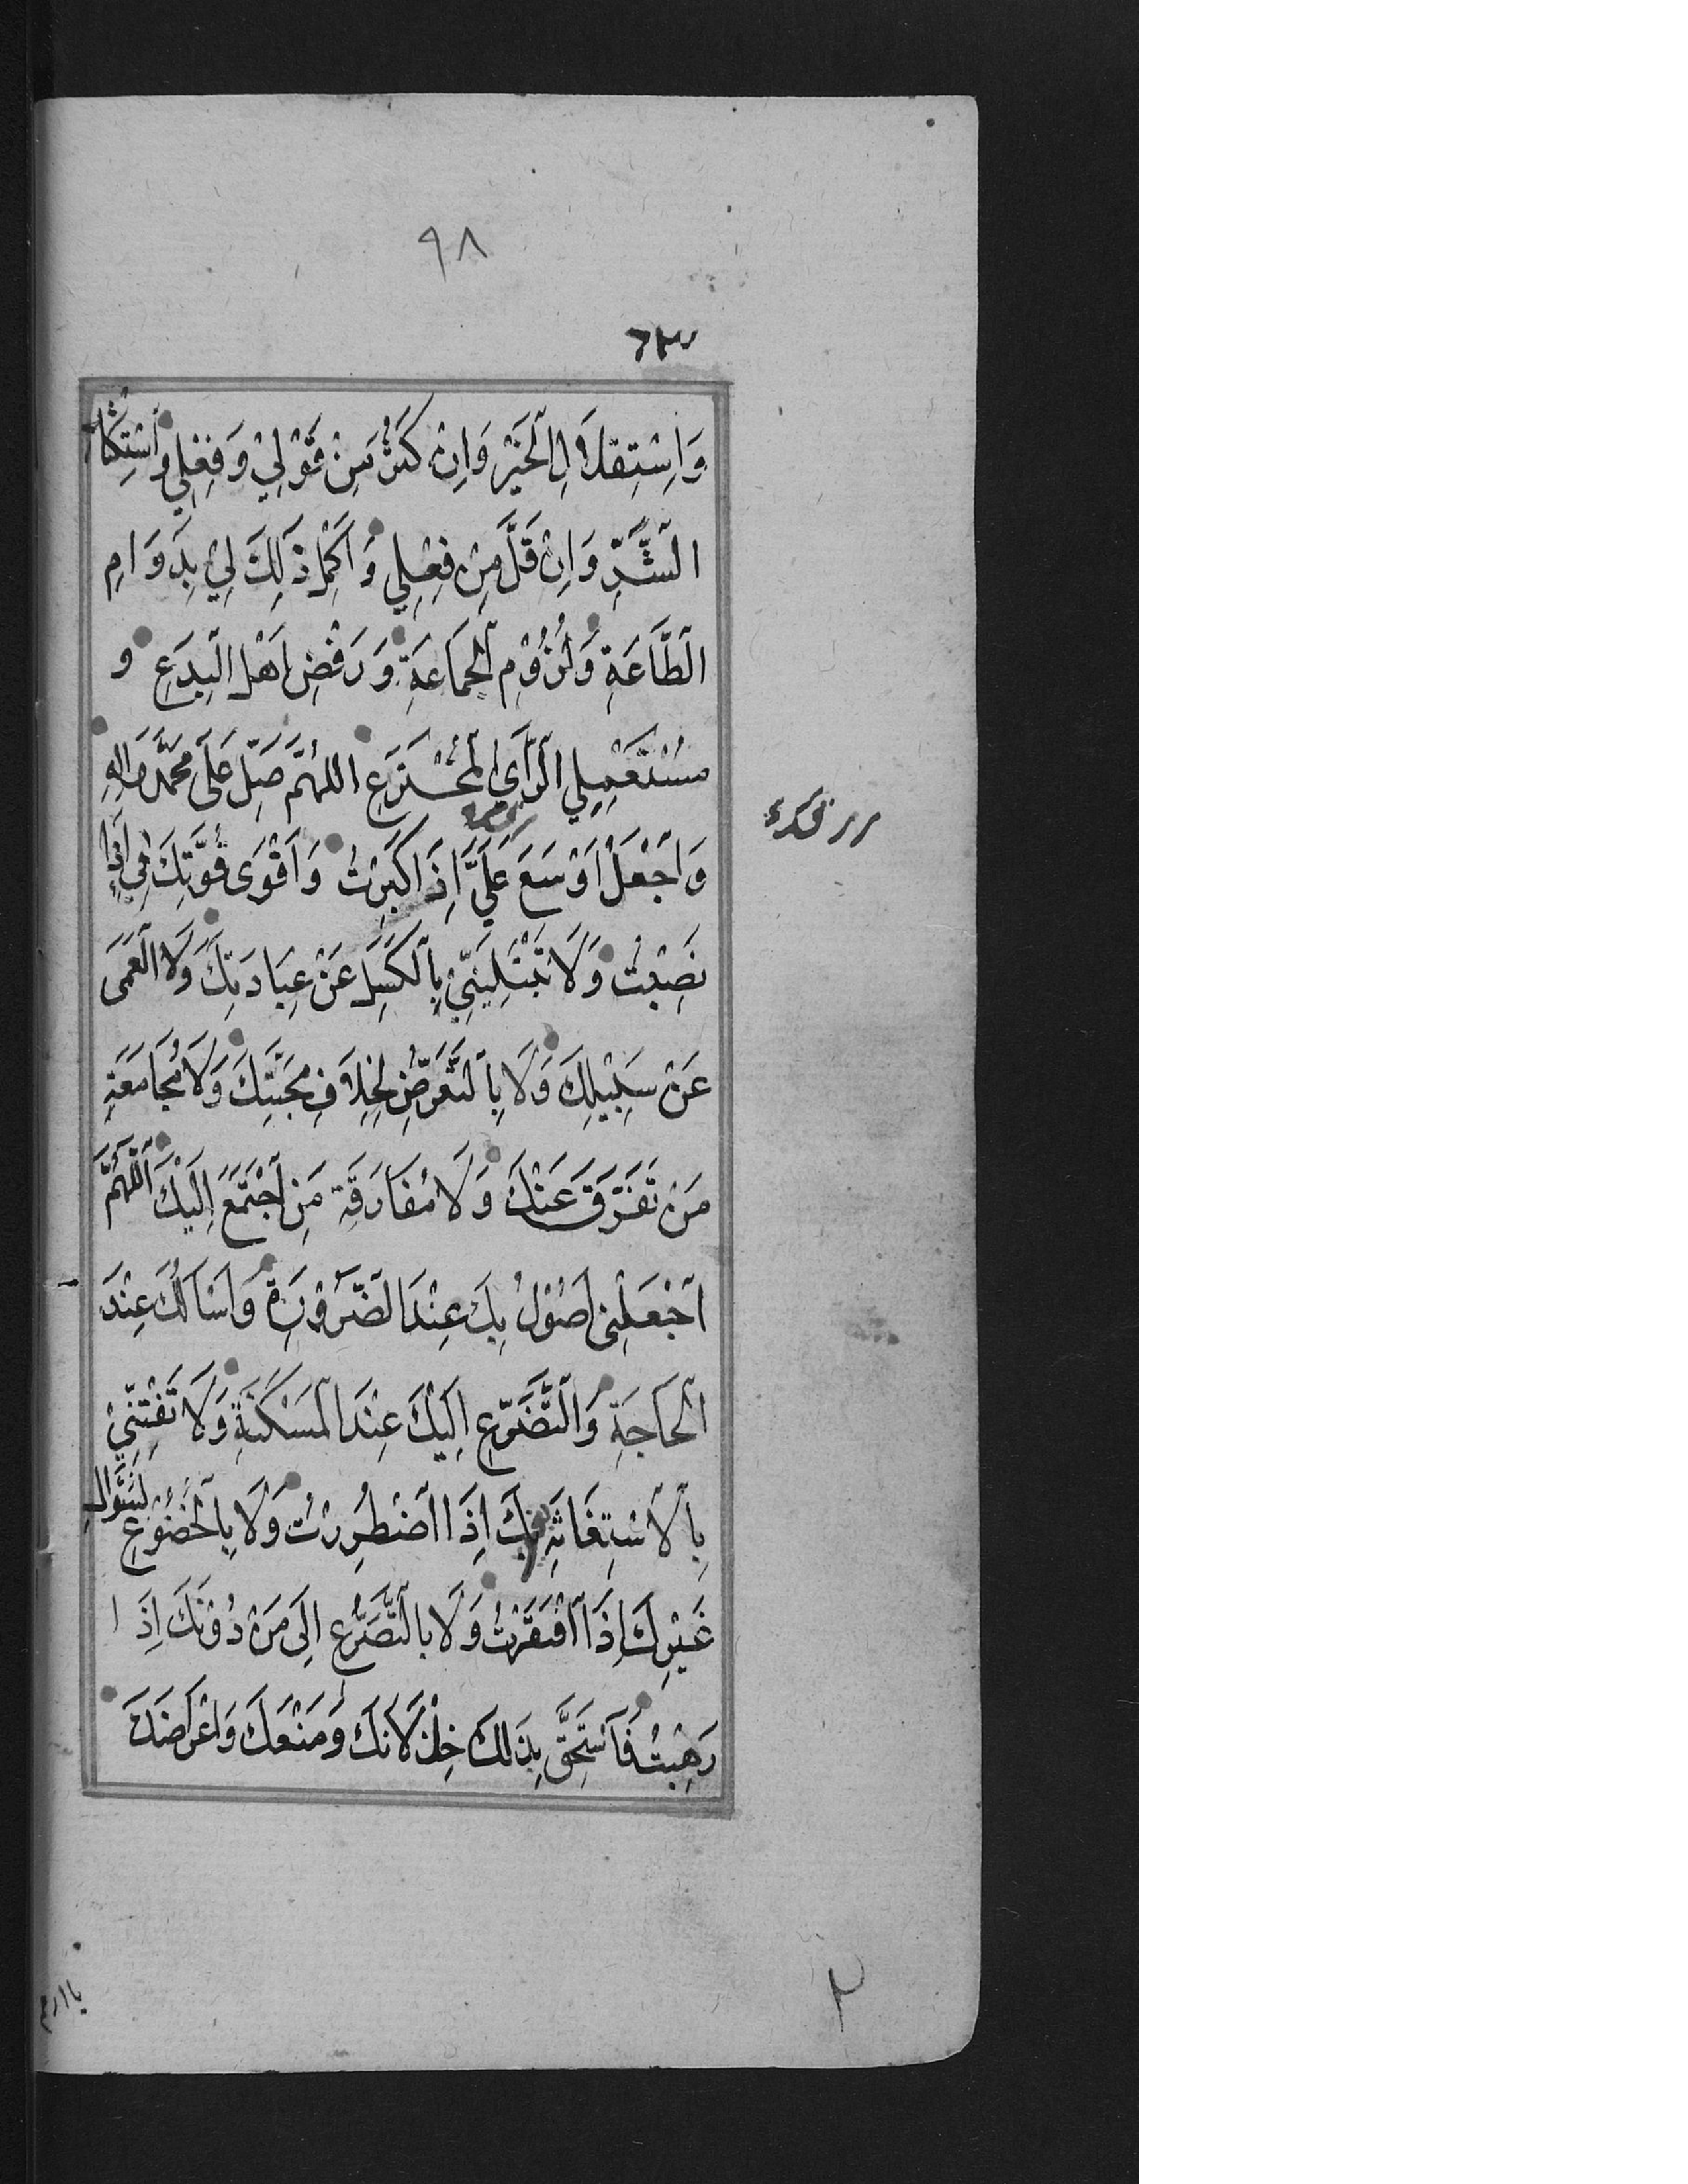 ٩٨
وَاِسْتِقلَالِ الْخَيْرِ وَاِنْ كَثُرَ مِنْ قَوْلِيْ وَفِعْلِي وَاسْتِكْثَارِ
الشَّرِّ وَاِنْ قَلَّ مِنْ فِعْلِي وَاَكْمِلْ ذٰلِكَ لِيْ بِدَوَامِ
الطَّاعَةِ وَلُزُوْمِ الْجَمَاعَةِ وَرَفْضِ اَهْلِ الْبِدَعِ و
مسْتَعْمِلِي الرَّأْيِ الْمُخْتَرَعِ اللهُمَّ صَلِّ عَلَى مُحَمَّدٍ وَالِهِ
وَاجْعَلْ اَوْسَعَ عَلَيَّ اِذَا كَبِرْتُ وَاَقْوَى قُوَّتِكَ فِي اِذَا
نَصِبْتُ وَلَا تَبْتَلِيَنِّيْ بِالْكَسَلِ عَنْ عِبَادَتِكَ وَلَا الْعَمَى
عَنْ سَبِيْلِكَ وَلَا بِالتَّعَرُّضِ لِخِلَافِ مَحَبَّتِكَ وَلَا مُجَامَعَةِ
مَنْ تَفَرَّقَ عَنْكَ وَلَا مُفَارَقَةِ مَنِ اجْتَمَعَ اِلَيْكَ اَللّٰهُمَّ
اجْعَلْنِى اَصُوْلُ بِكَ عِنْدَ الضَّرُوْرَةِ وَاَسْاَلُكَ عِنْدَ
الْحَاجَةِ وَالتَّضَرُّعِ اِلَيْكَ عِنْدَ الْمَسْكَنَةِ وَلَا تَفْتِنِّيْ
بِالْاسْتِغَاثَةِ بِكَ اِذَا اضْطُرِرْتُ وَلَا بِالْخُضُوْعِ لِسُؤَالِ
غَيْرِكَ اِذَا افْتَقَرْتُ وَلَا بالتَّضَرُّعِ اِلَى مَنْ دُوْنَكَ اِذَا
رَهِبْتُ فَاَسْتَحِقَّ بِذَلِكَ خِذْلَانَكَ وَمَنْعَكَ وَاعْرَاضَكَ